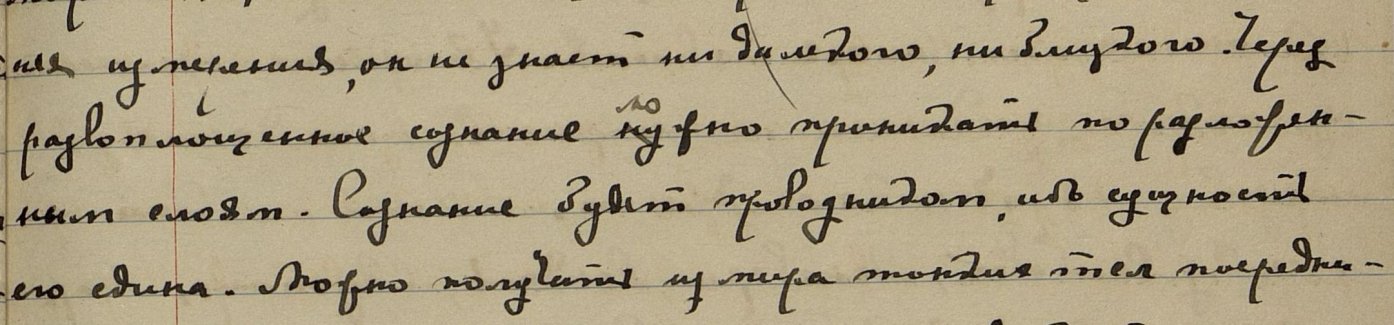 ния измерения, он не знает ни далекого, ни близкого. Через
развоплощенное сознание можно проникать по разложен-
ным слоям. Сознание будет проводником, ибо сущность
его едина. Можно получить из мира тонких тел посредни-